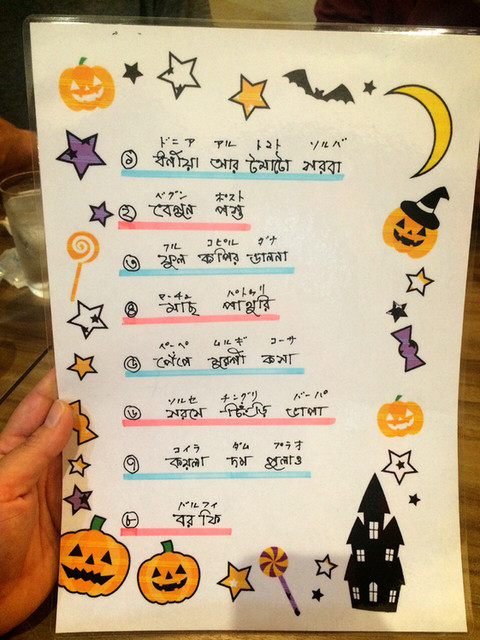 ドニア アル トマト ソルバ
① ধনিয়া আর টমাটো সরবা
ベグン ポスト
② বেগুন পস্তু
フル コピル ダナ
③ ফুল কপির ডালনা
マーチュ パトゥリ
④ মাছ পাথুরি
ペーペ ムルギ コーサ
⑤ পেঁপে মুরগী কসা
ソルセ チングリ バーパ
৬ সরষে চিংড়ি ভাপা
コイラ ダム プラオ
৭ কয়লা দম পুলাও
バルフィ
৮ বরফি